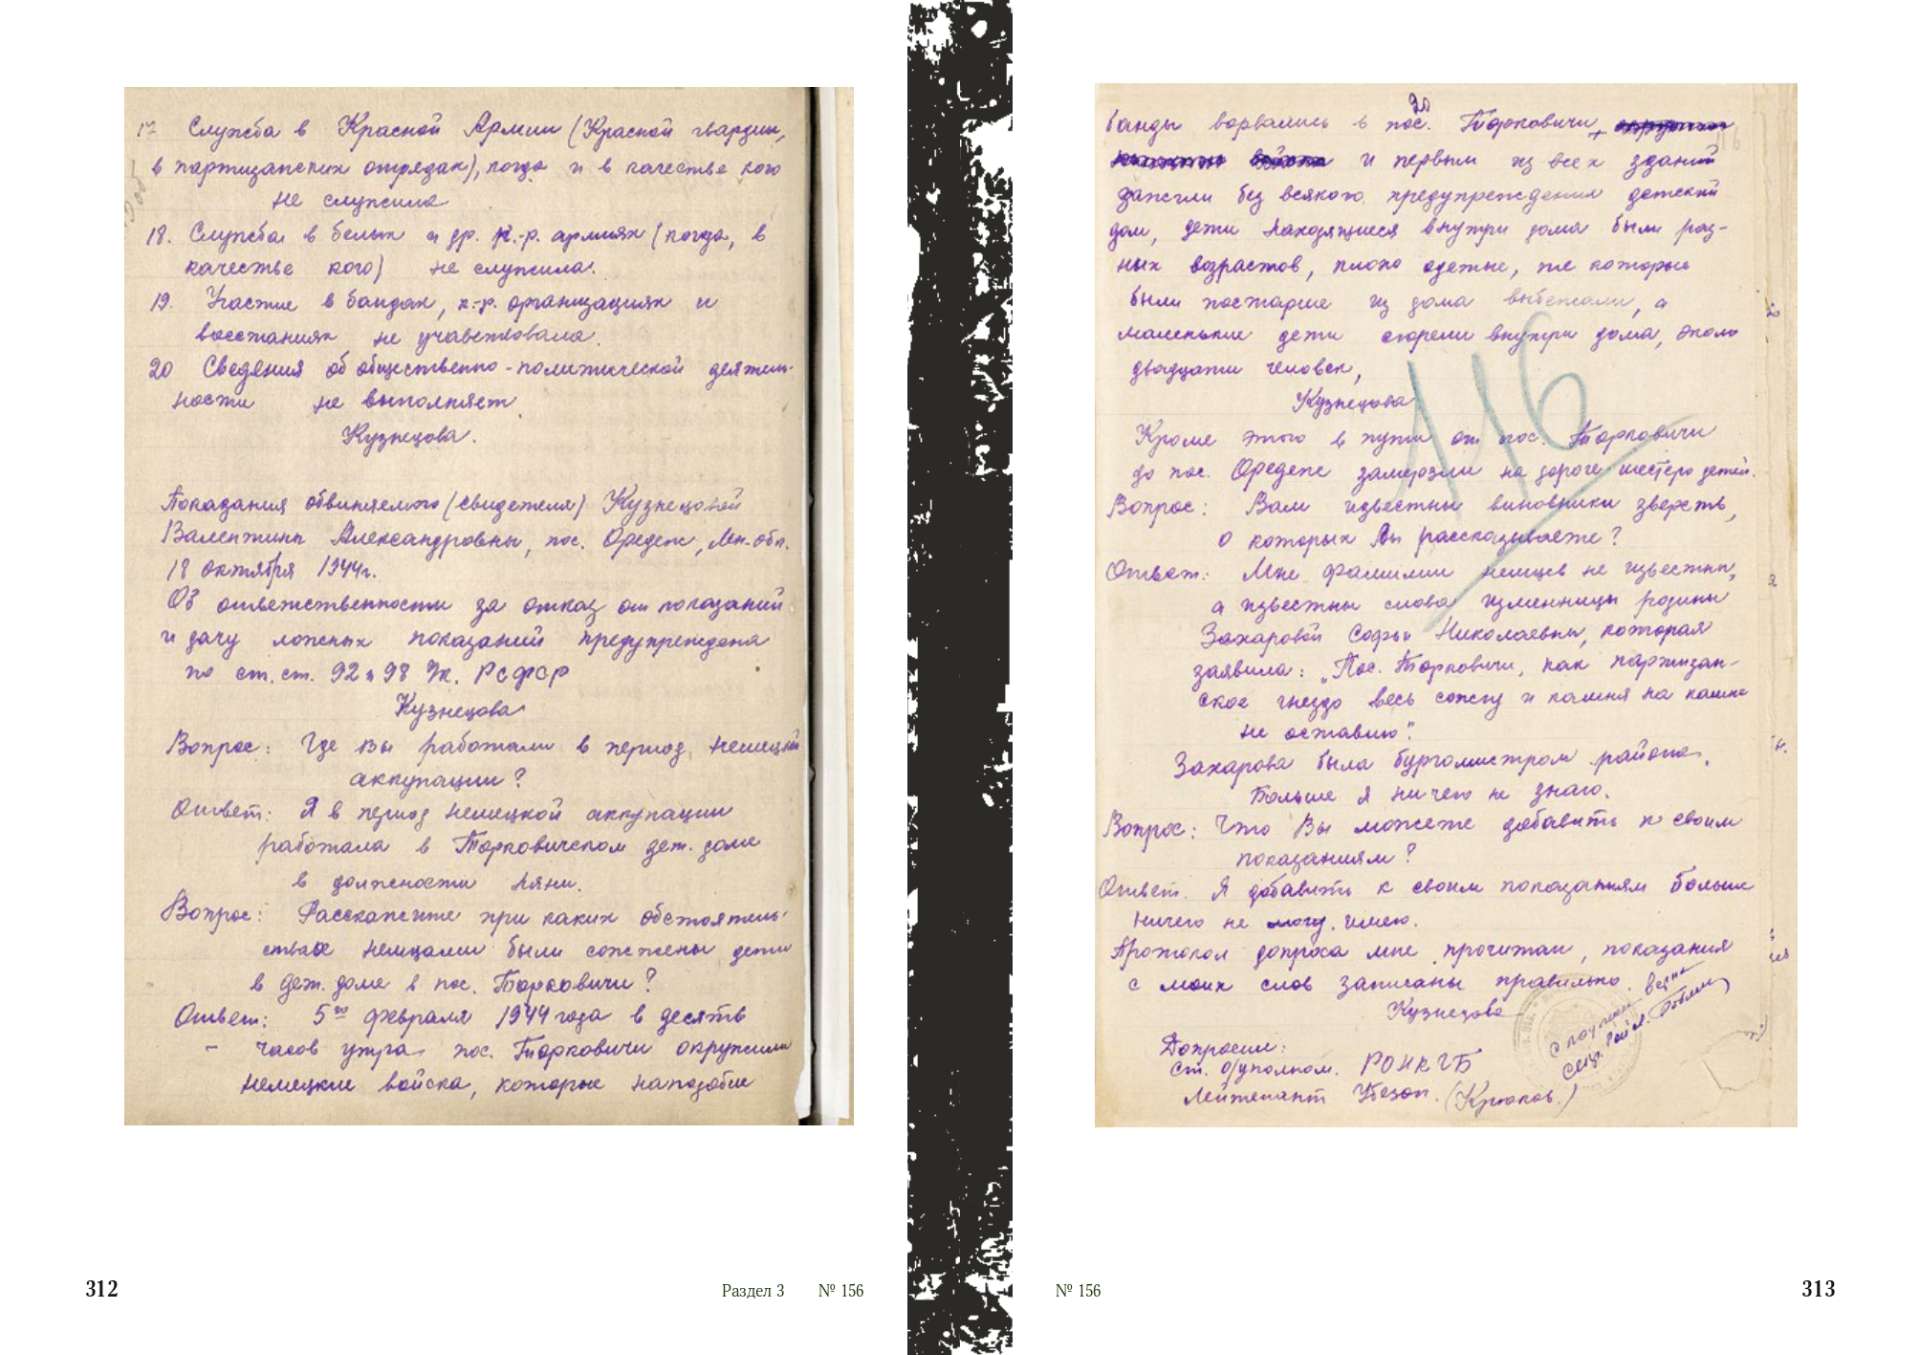 17 Служба в Красной Армии (Красной гвардии,
в партизанских отрядах), когда и в качестве кого
не служила
18. Служба в белых и др. к.-р. армиях (когда, в
качестве кого) не служила.
19. Участие в бандах, к.-р. организациях и
восстаниях не учавствовала.
20 Сведения об общественно-политической деятель-
ности не выполняет
Кузнецова.
Показания обвиняемого (свидетеля) Кузнецовой
Валентины Александровны, пос. Оредеж, Лен. обл.
18 октября 1944г.
Об ответственности за отказ от показаний
и дачу ложных показаний предупреждена
по ст. ст. 92 и 98 УК. РСФСР
Кузнецова
Вопрос: Где вы работали в период немецкой
аккупации?
Ответ: Я в период немецкой аккупации
работала в Торковичском дет. доме
в должности няни.
Вопрос: Расскажите при каких обстоятель-
ствах немцами были сожжены дети
в дет. доме в пос. Торковичи?
Ответ: 5го февраля 1944 года в десять
часов утра пос. Торковичи окружили
немецкие войска, которые наподобие
банды ворвались в пос. Торковичи,
и первым из всех зданий
зажгли без всякого предупреждения детский
дом, дети находящиеся внутри дома были раз-
ных возрастов, плохо одетые, те которые
были постарше из дома выбежали, а
маленькие дети сгорели внутри дома, около
двадцати человек,
Кузнецова
Кроме этого в пути от пос. Торковичи
до пос. Оредеж замерзли на дороге шестеро детей.
Вопрос: Вам известны виновники зверств,
о которых Вы рассказываете?
Ответ: Мне фамилии немцев не известны,
а известны слова изменницы родины
Захаровой Софьи Николаевны, которая
заявила: „Пос. Торковичи, как партизан-
ское гнездо весь сожгу и камня на камне
не оставлю".
Захарова была бургомистром района.
Больше я ничего не знаю.
Вопрос: Что Вы можете добавить к своим
показаниям?
Ответ. Я добавить к своим показаниям больше
ничего не могу. имею.
Протокол допроса мне прочитан, показания
с моих слов записаны правильно.
Кузнецова
Допросил:
Ст. о/уполном. РОНКГБ
Лейтенант (Крюков.)
116
312
Раздел 3 № 156
№ 156
313